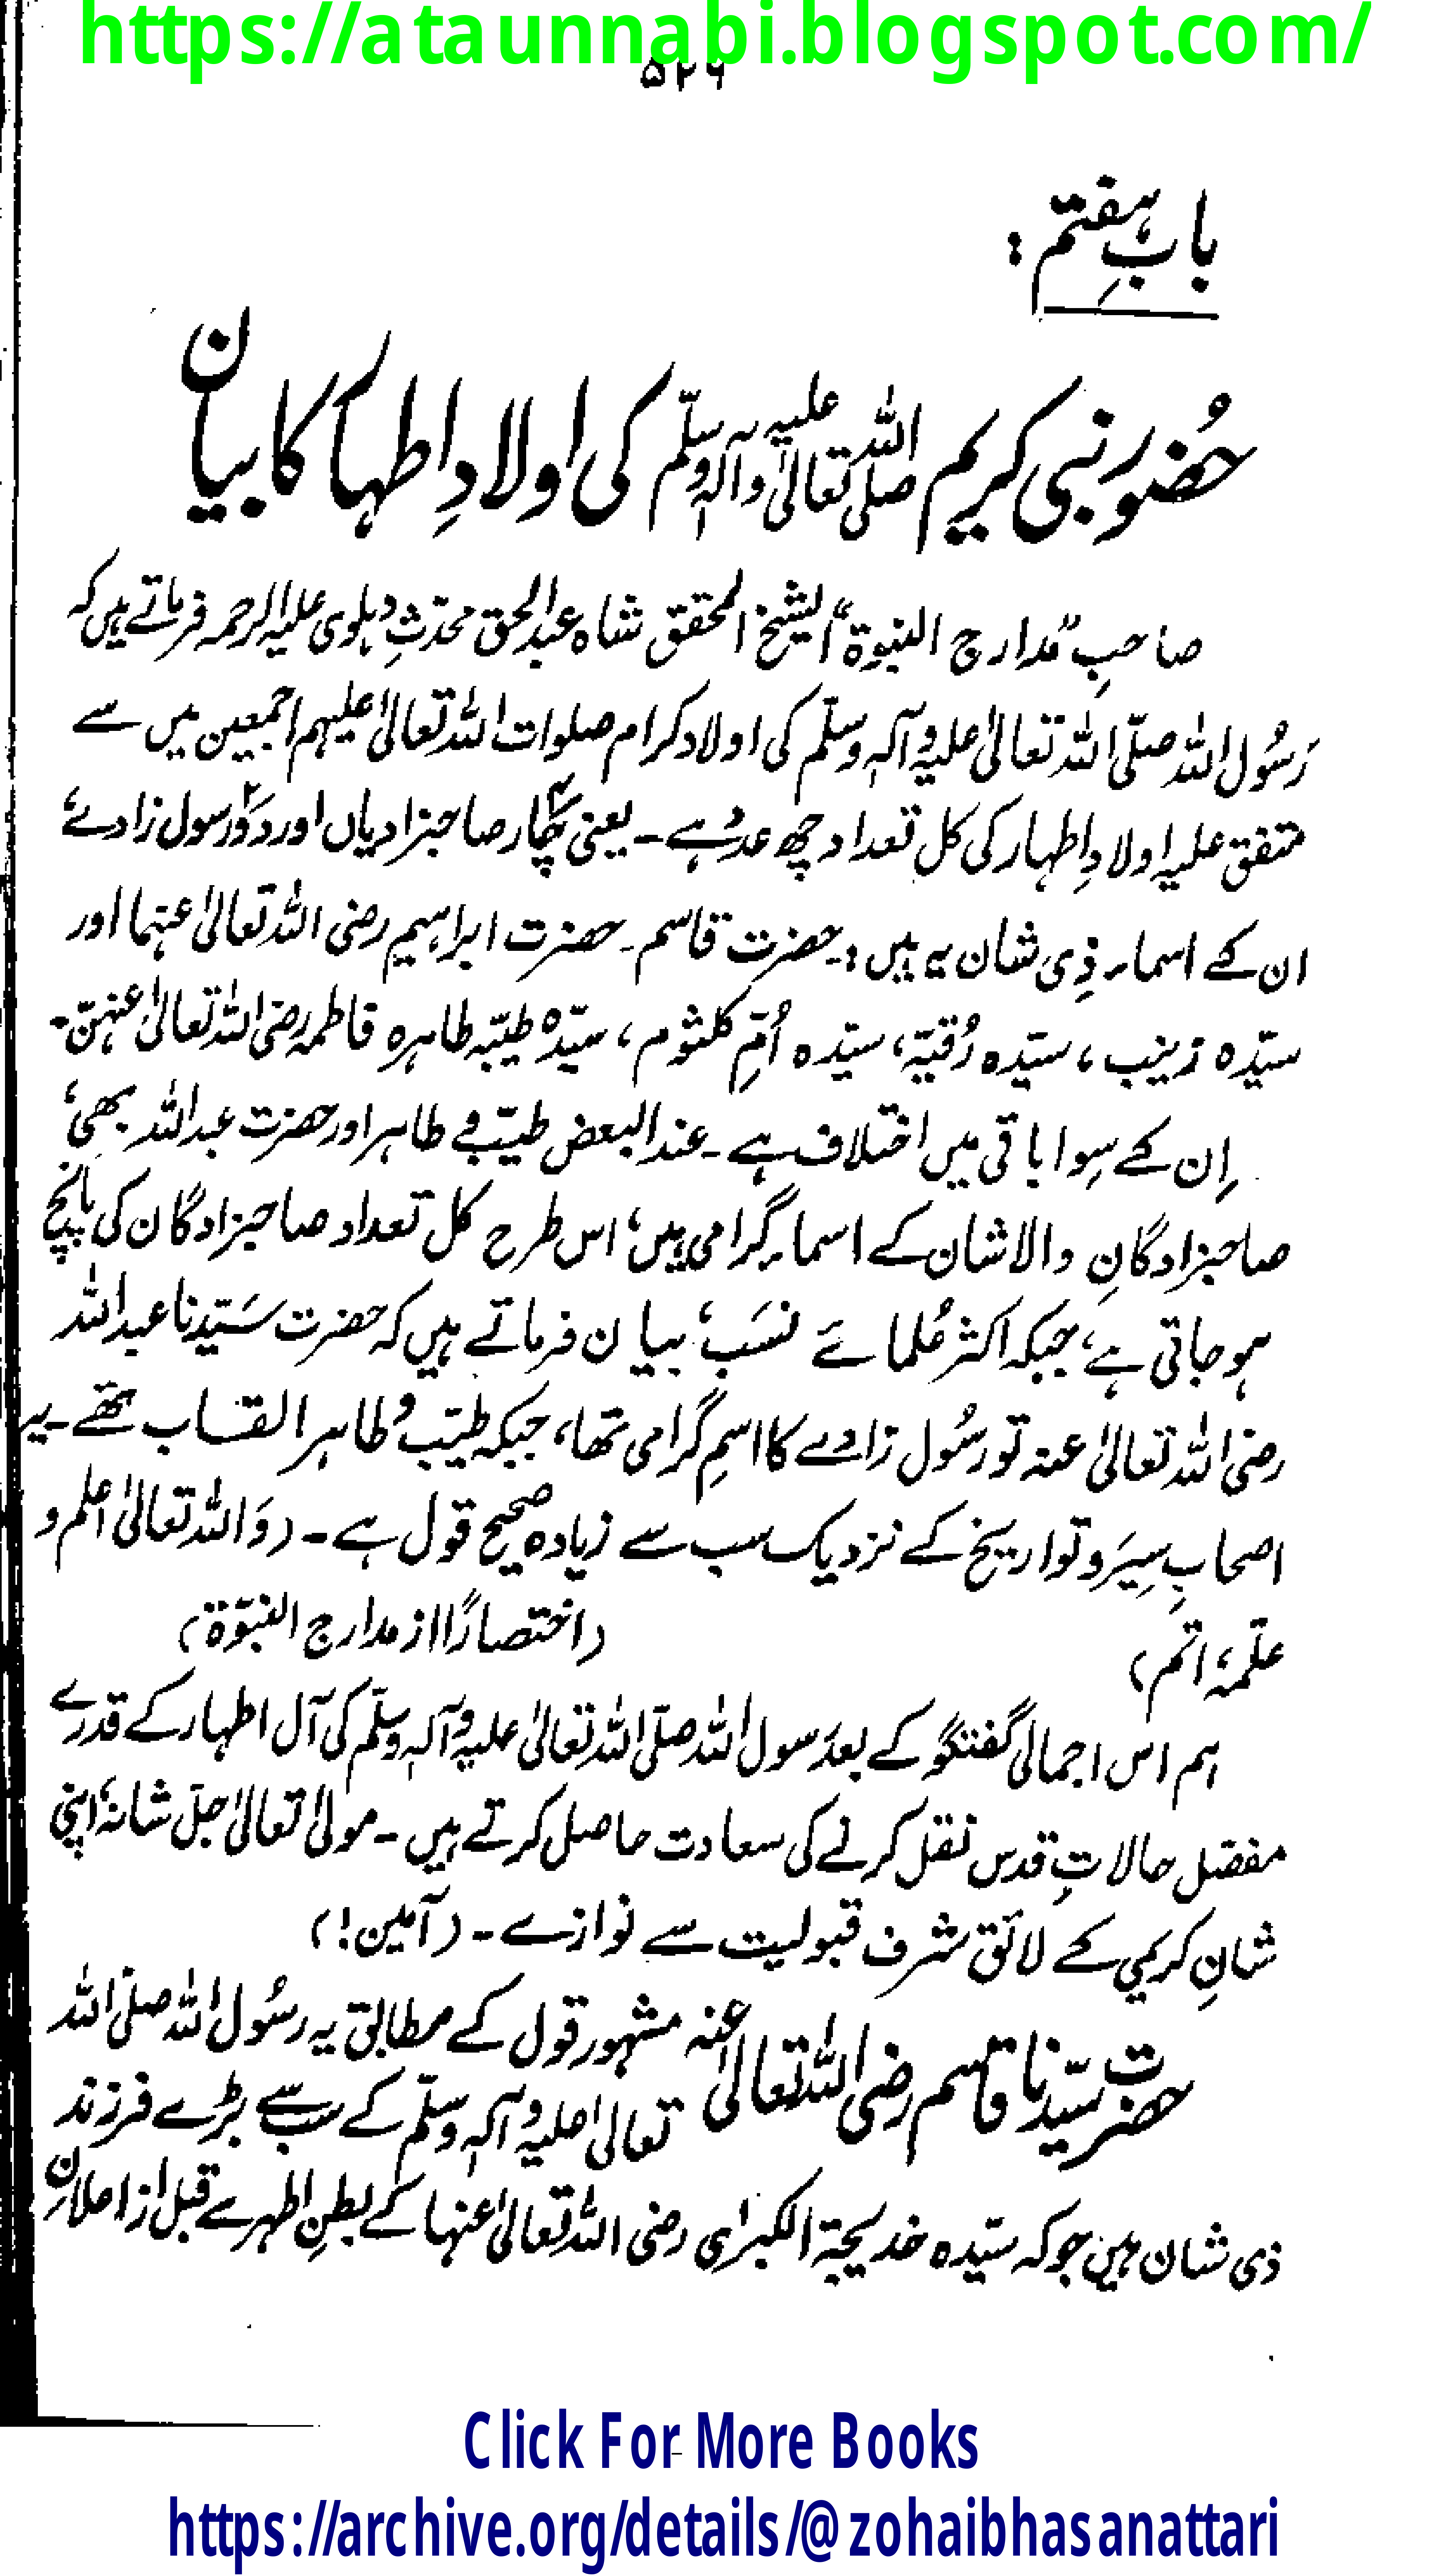 https://ataunnabi.blogspot.com/
۵۲۶
بابِ ہفتم:
حضُور نبی کریم صلی اللہ تعالیٰ علیہ وآلہٖ وسلّم کی اولادِ اطہار کا بیان
صاحبِ "مدارج النبوۃ" الشیخ المحقق شاہ عبدالحق محدّثِ دہلوی علیہ الرحمہ فرماتے ہیں کہ
رَسُول اللہ صلّی اللہ تعالیٰ علیہ وآلہٖ وسلّم کی اولاد کرام صلوات اللہ تعالیٰ علیہم اجمعین میں سے
متفق علیہ اولادِ اطہار کی کل تعداد چھ عدد ہے۔ یعنی چار صاحبزادیاں اور دو رسول زادے
ان کے اسماء ذِی شان یہ ہیں: حضرت قاسم۔ حضرت ابراہیم رضی اللہ تعالیٰ عنہما اور
سیّدہ زینب، سیّدہ رُقیّہ، سیّدہ اُمِّ کلثوم، سیّدہ طیّبہ طاہرہ فاطمہ رضی اللہ تعالیٰ عنہنّ۔
اِن کے سِوا باقی میں اختلاف ہے۔ عند البعض طیّب و طاہر اور حضرت عبداللہ بھی
صاحبزادگانِ والا شان کے اسماء گرامی ہیں، اس طرح کل تعداد صاحبزادگان کی پانچ
ہو جاتی ہے، جبکہ اکثر عُلمائے نسَب، بیان فرماتے ہیں کہ حضرت سَیّدنا عبداللہ
رضی اللہ تعالیٰ عنہ تو رسُول زادے کا اسمِ گرامی تھا، جبکہ طیّب و طاہر القاب تھے۔ یہ
اصحابِ سِیَر و تواریخ کے نزدیک سب سے زیادہ صحیح قول ہے۔ (وَاللہ تعالیٰ اعلم و
علّمہٗ اتم) (اختصارًا از مدارج النبوّۃ)
ہم اس اجمالی گفتگو کے بعد رَسول اللہ صلّی اللہ تعالیٰ علیہ وآلہٖ وسلّم کی آل اطہار کے قدرے
مفصّل حالاتِ قدس نقل کرنے کی سعادت حاصل کرتے ہیں۔ مولیٰ تعالیٰ جلّ شانہٗ اپنی
شانِ کریمی کے لائق شرف قبولیت سے نوازے۔ (آمین!)
حضرت سیّدنا قاسم رضی اللہ تعالیٰ عنہ مشہور قول کے مطابق یہ رسُول اللہ صلّی اللہ
تعالیٰ علیہ وآلہٖ وسلّم کے سب سے بڑے فرزند
ذی شان ہیں جو کہ سیّدہ خدیجۃ الکبرٰی رضی اللہ تعالیٰ عنہا کے بطنِ اطہر سے قبل از اعلانِ
Click For More Books
https://archive.org/details/@zohaibhasanattari